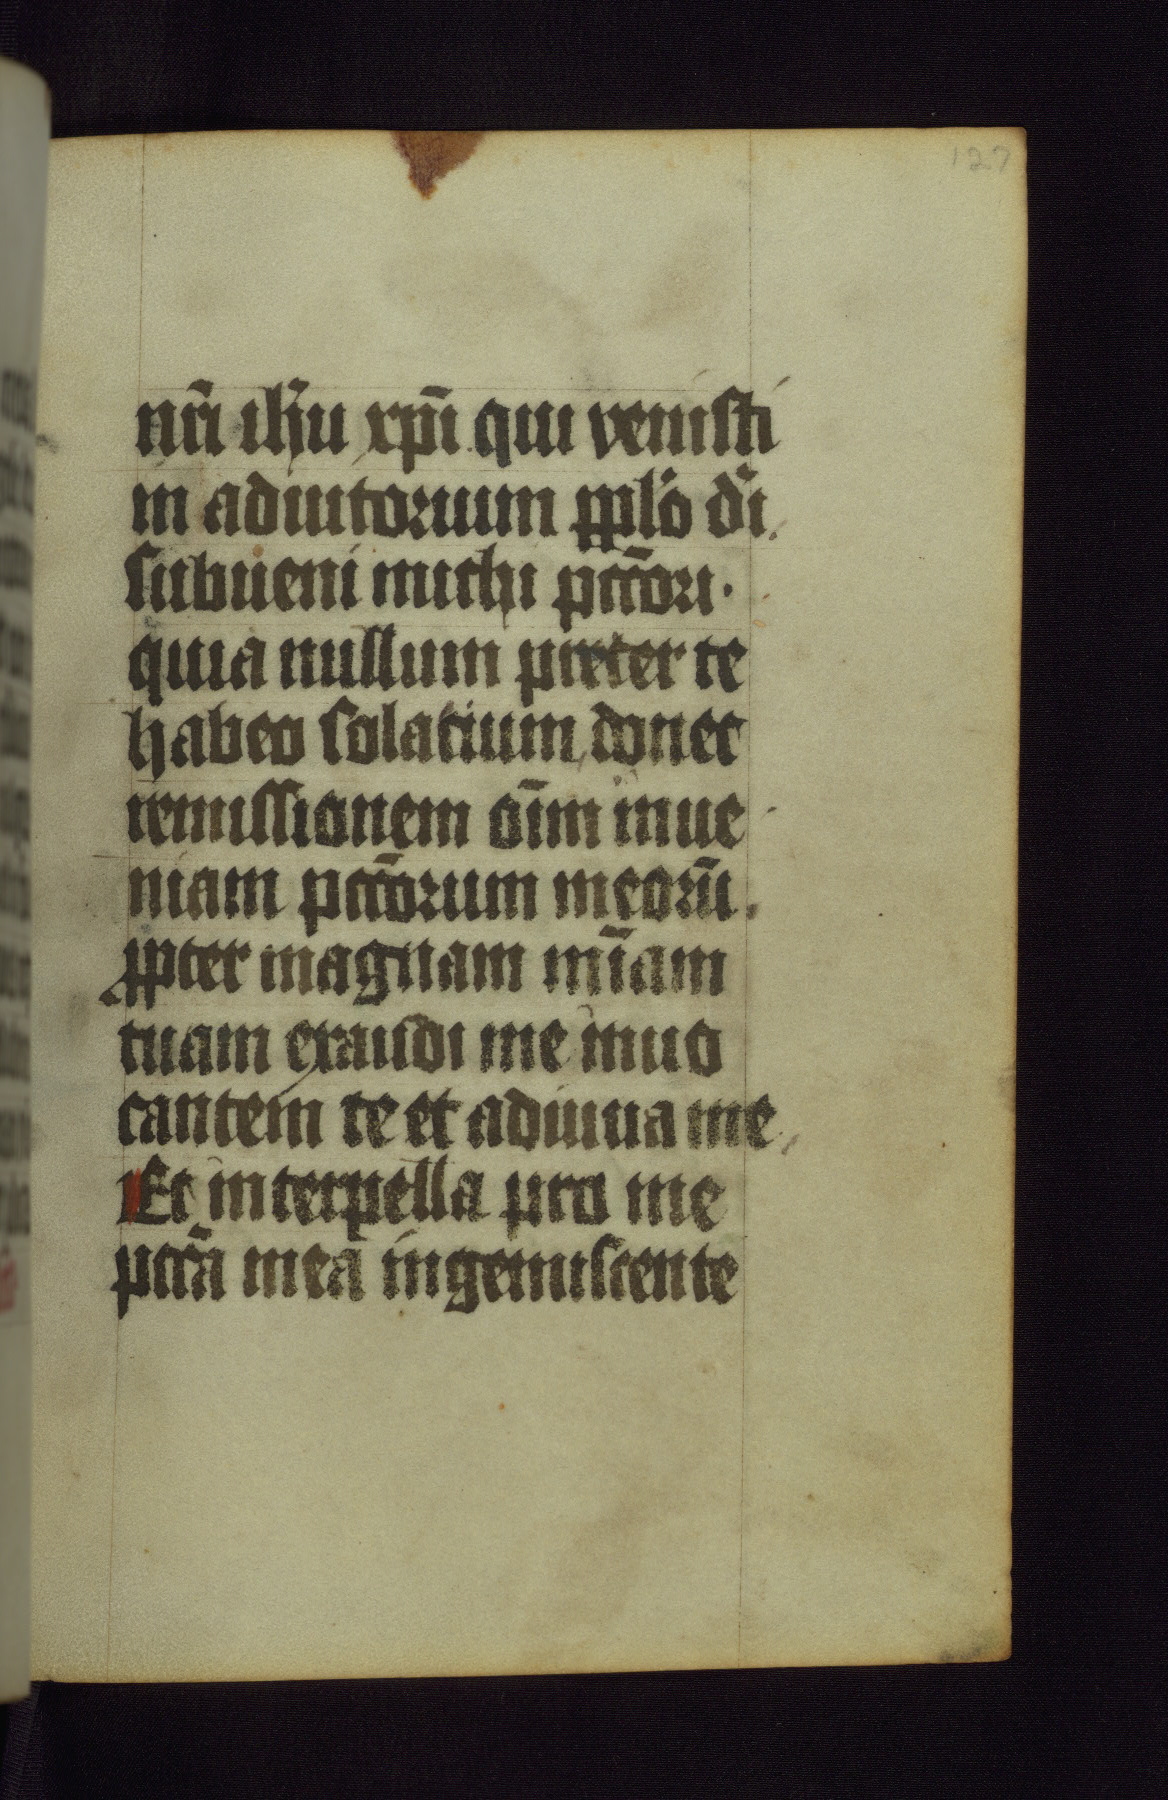 127
nr̄i ih̄u xp̄i qui venisti
in adiutorium pplō dī.
subueni michi pcc̄ori·
quia nullum preter te
habeo solatium, donec
remissionem oīm inue
niam pcc̄orum meorū.
ꝓpter magnam mīam
tuam exaudi me inuo
cantem te et adiuua me,
Et interpella pro me
pcc̄a mea ingemiscente